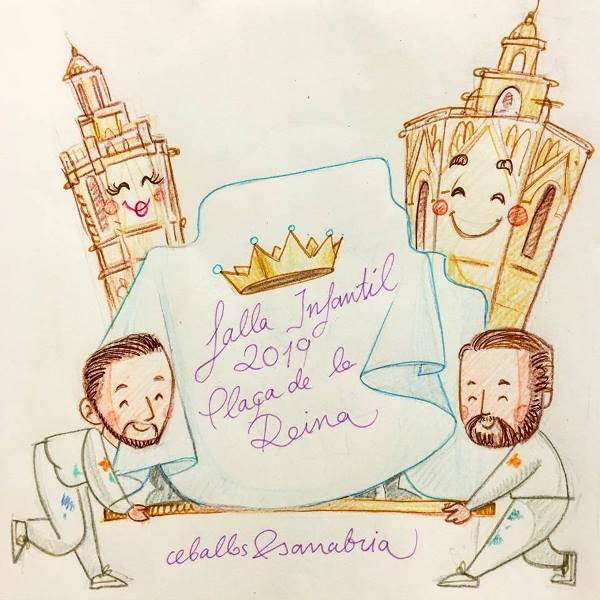 falla Infantil
2019
Plaça de la
Reina
ceballos&sanabria